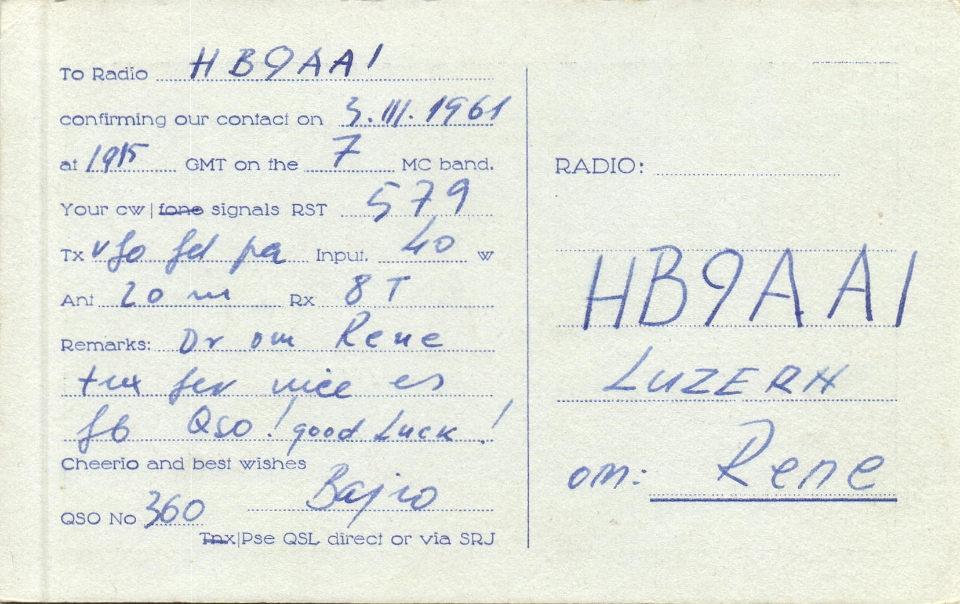 To Radio HB9AA1
confirming our contact on 3.III.1961
at 1915 GMT on the 7 MC band.
Your cw|fone signals RST 579
Tx vfo fd pa Input. 40 w
Ant 20 m Rx 8 T
Remarks: Dr om Rene
tnx fer nice es
fb QSO! good Luck!
Cheerio and best wishes
QSO No 360 Bajro
Tnx|Pse QSL direct or via SRJ
RADIO:
HB9AA1
LUZERN
om: Rene